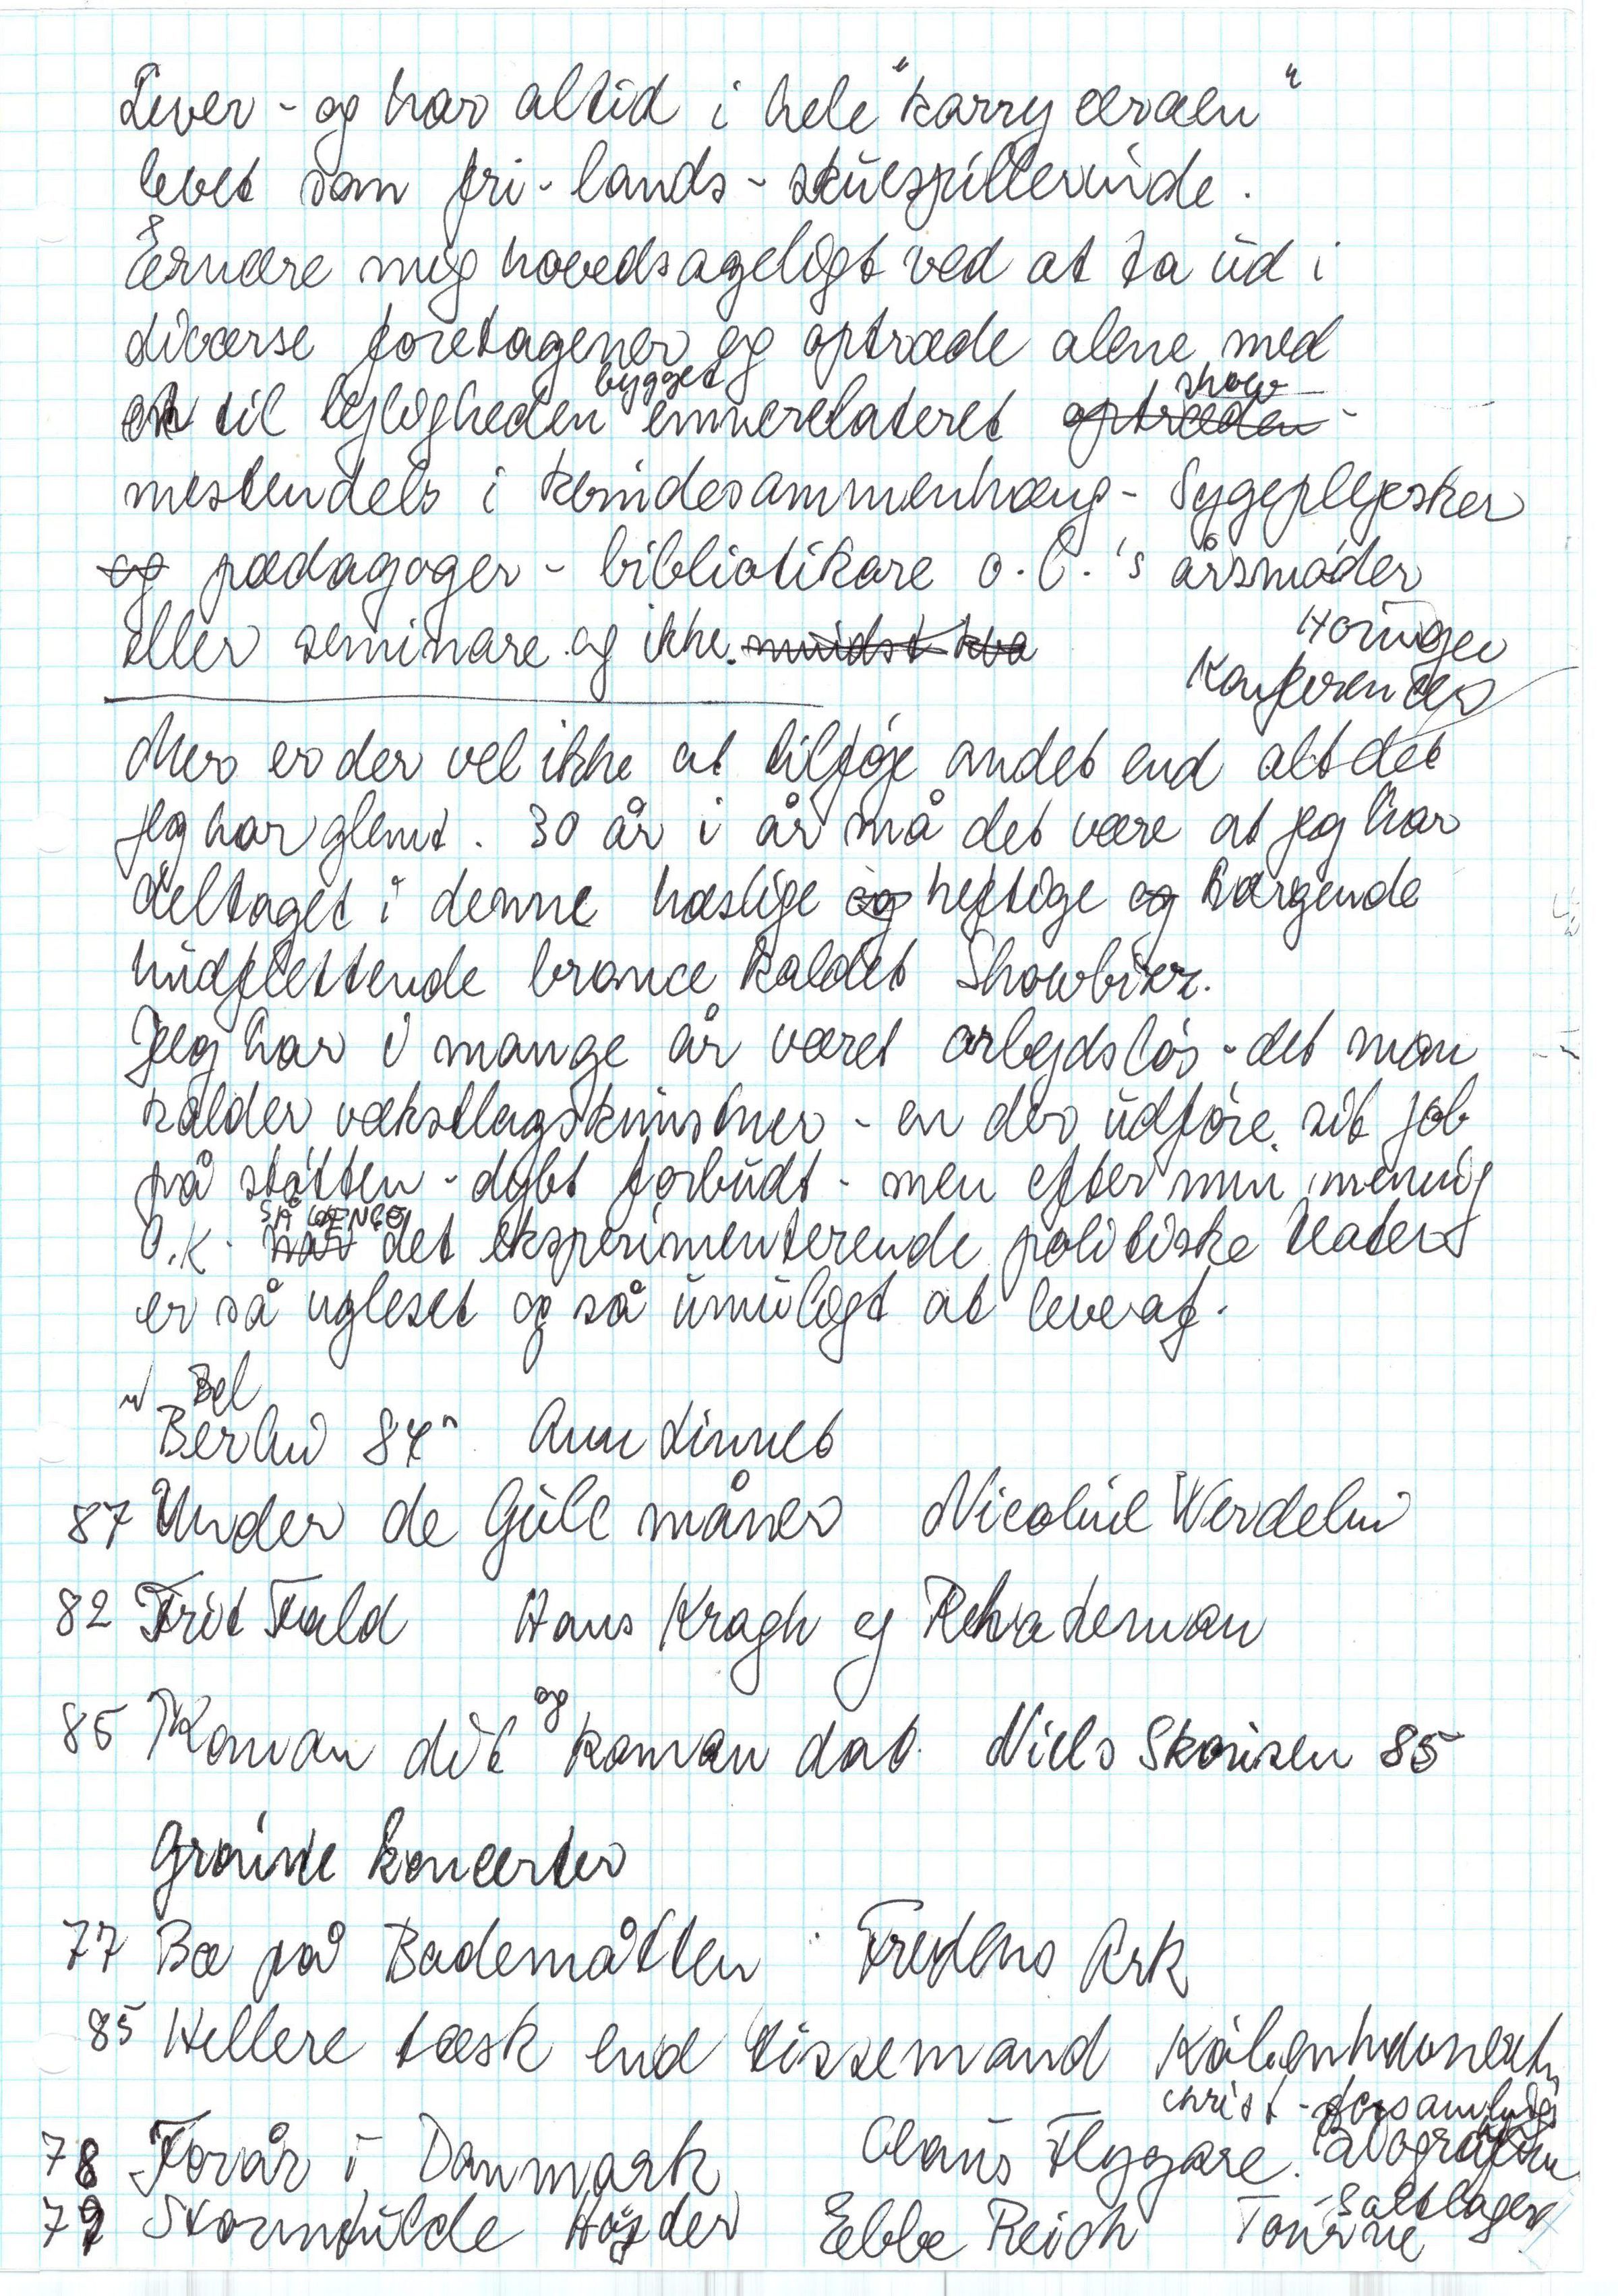 Lever - og har altid i hele "karry æraen"
levet som fri-lands-skuespillerinde.
Ernære mig hovedsageligt ved at ta ud i
diverse foretagener og optræde alene med
et til lejligheden bygget emnerelateret optræden show -
mestendels i kvindesammenhæng - Sygeplejesker
og pædagoger - bibliotikare o.l.'s årsmøder
eller seminare og ikke mindst kva
Høringer
Konferencer
Mer er der vel ikke at tilføje andet end alt det
jeg har glemt. 30 år i år må det være at jeg har
deltaget i denne hæslige og heftige og hærgende
hudflettende brance kaldet Showbizz.
Jeg har i mange år været arbejdsløs - det man
kalder vækstlagskunstner - en der udføre sit job
på støtten - dybt forbudt - men efter min mening
O.K. når SÅ LÆNGE det eksperimenterende politiske teater
er så ugleset og så umuligt at leve af.
Bel
Berlin 84" Anne Linnet
87 Under de Gule måner Nicoline Werdelin
82 Frit Fald Hans Kragh og
85 Koman dit og koman dat. Niels Skousen 85
Grønne koncerter
77 Bæ på Bademåtten Fredens Ark
85 Hellere tæsk end tissemand
christ - forsamling
78 Forår i Danmark Claus Flygare.
Saltlager
79 Stormfulde Højder Ebbe Reich Tourne